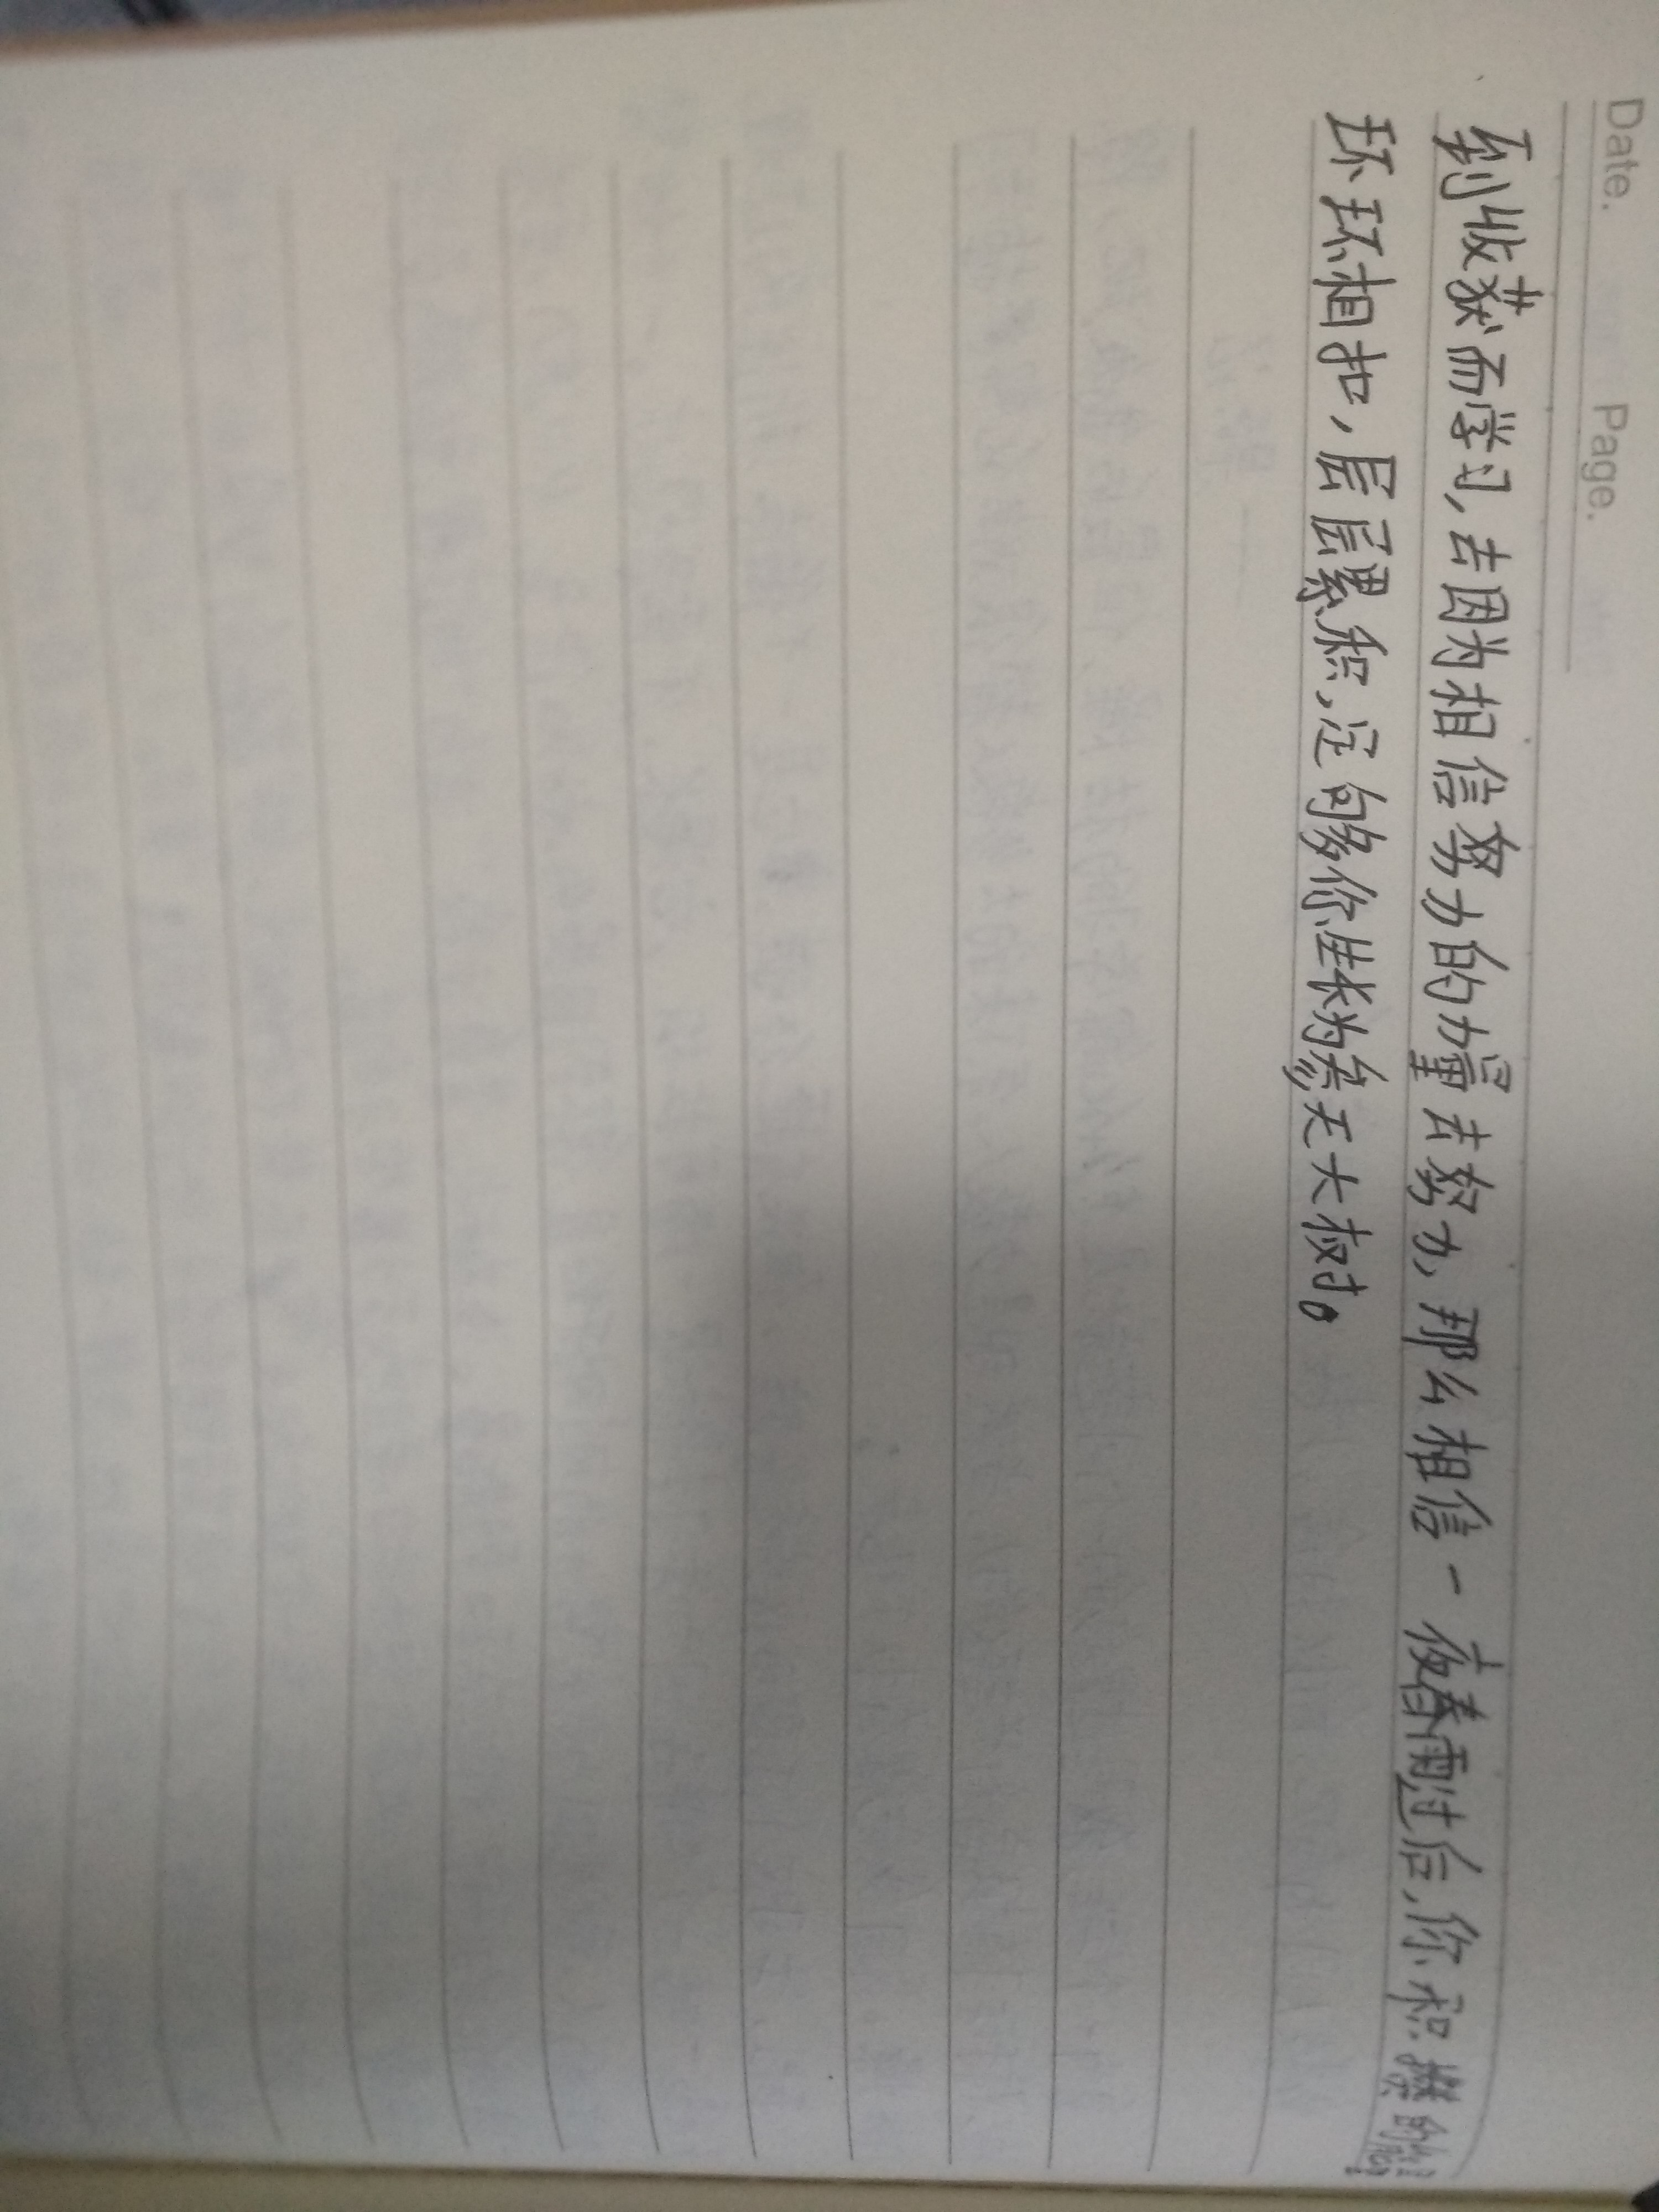 Date. Page.
到收获而学习,去因为相信努力的力量去努力,那么相信一夜春雨过后,你积攒的能
环环相扣,层层累积,定向够你生长为参天大树。